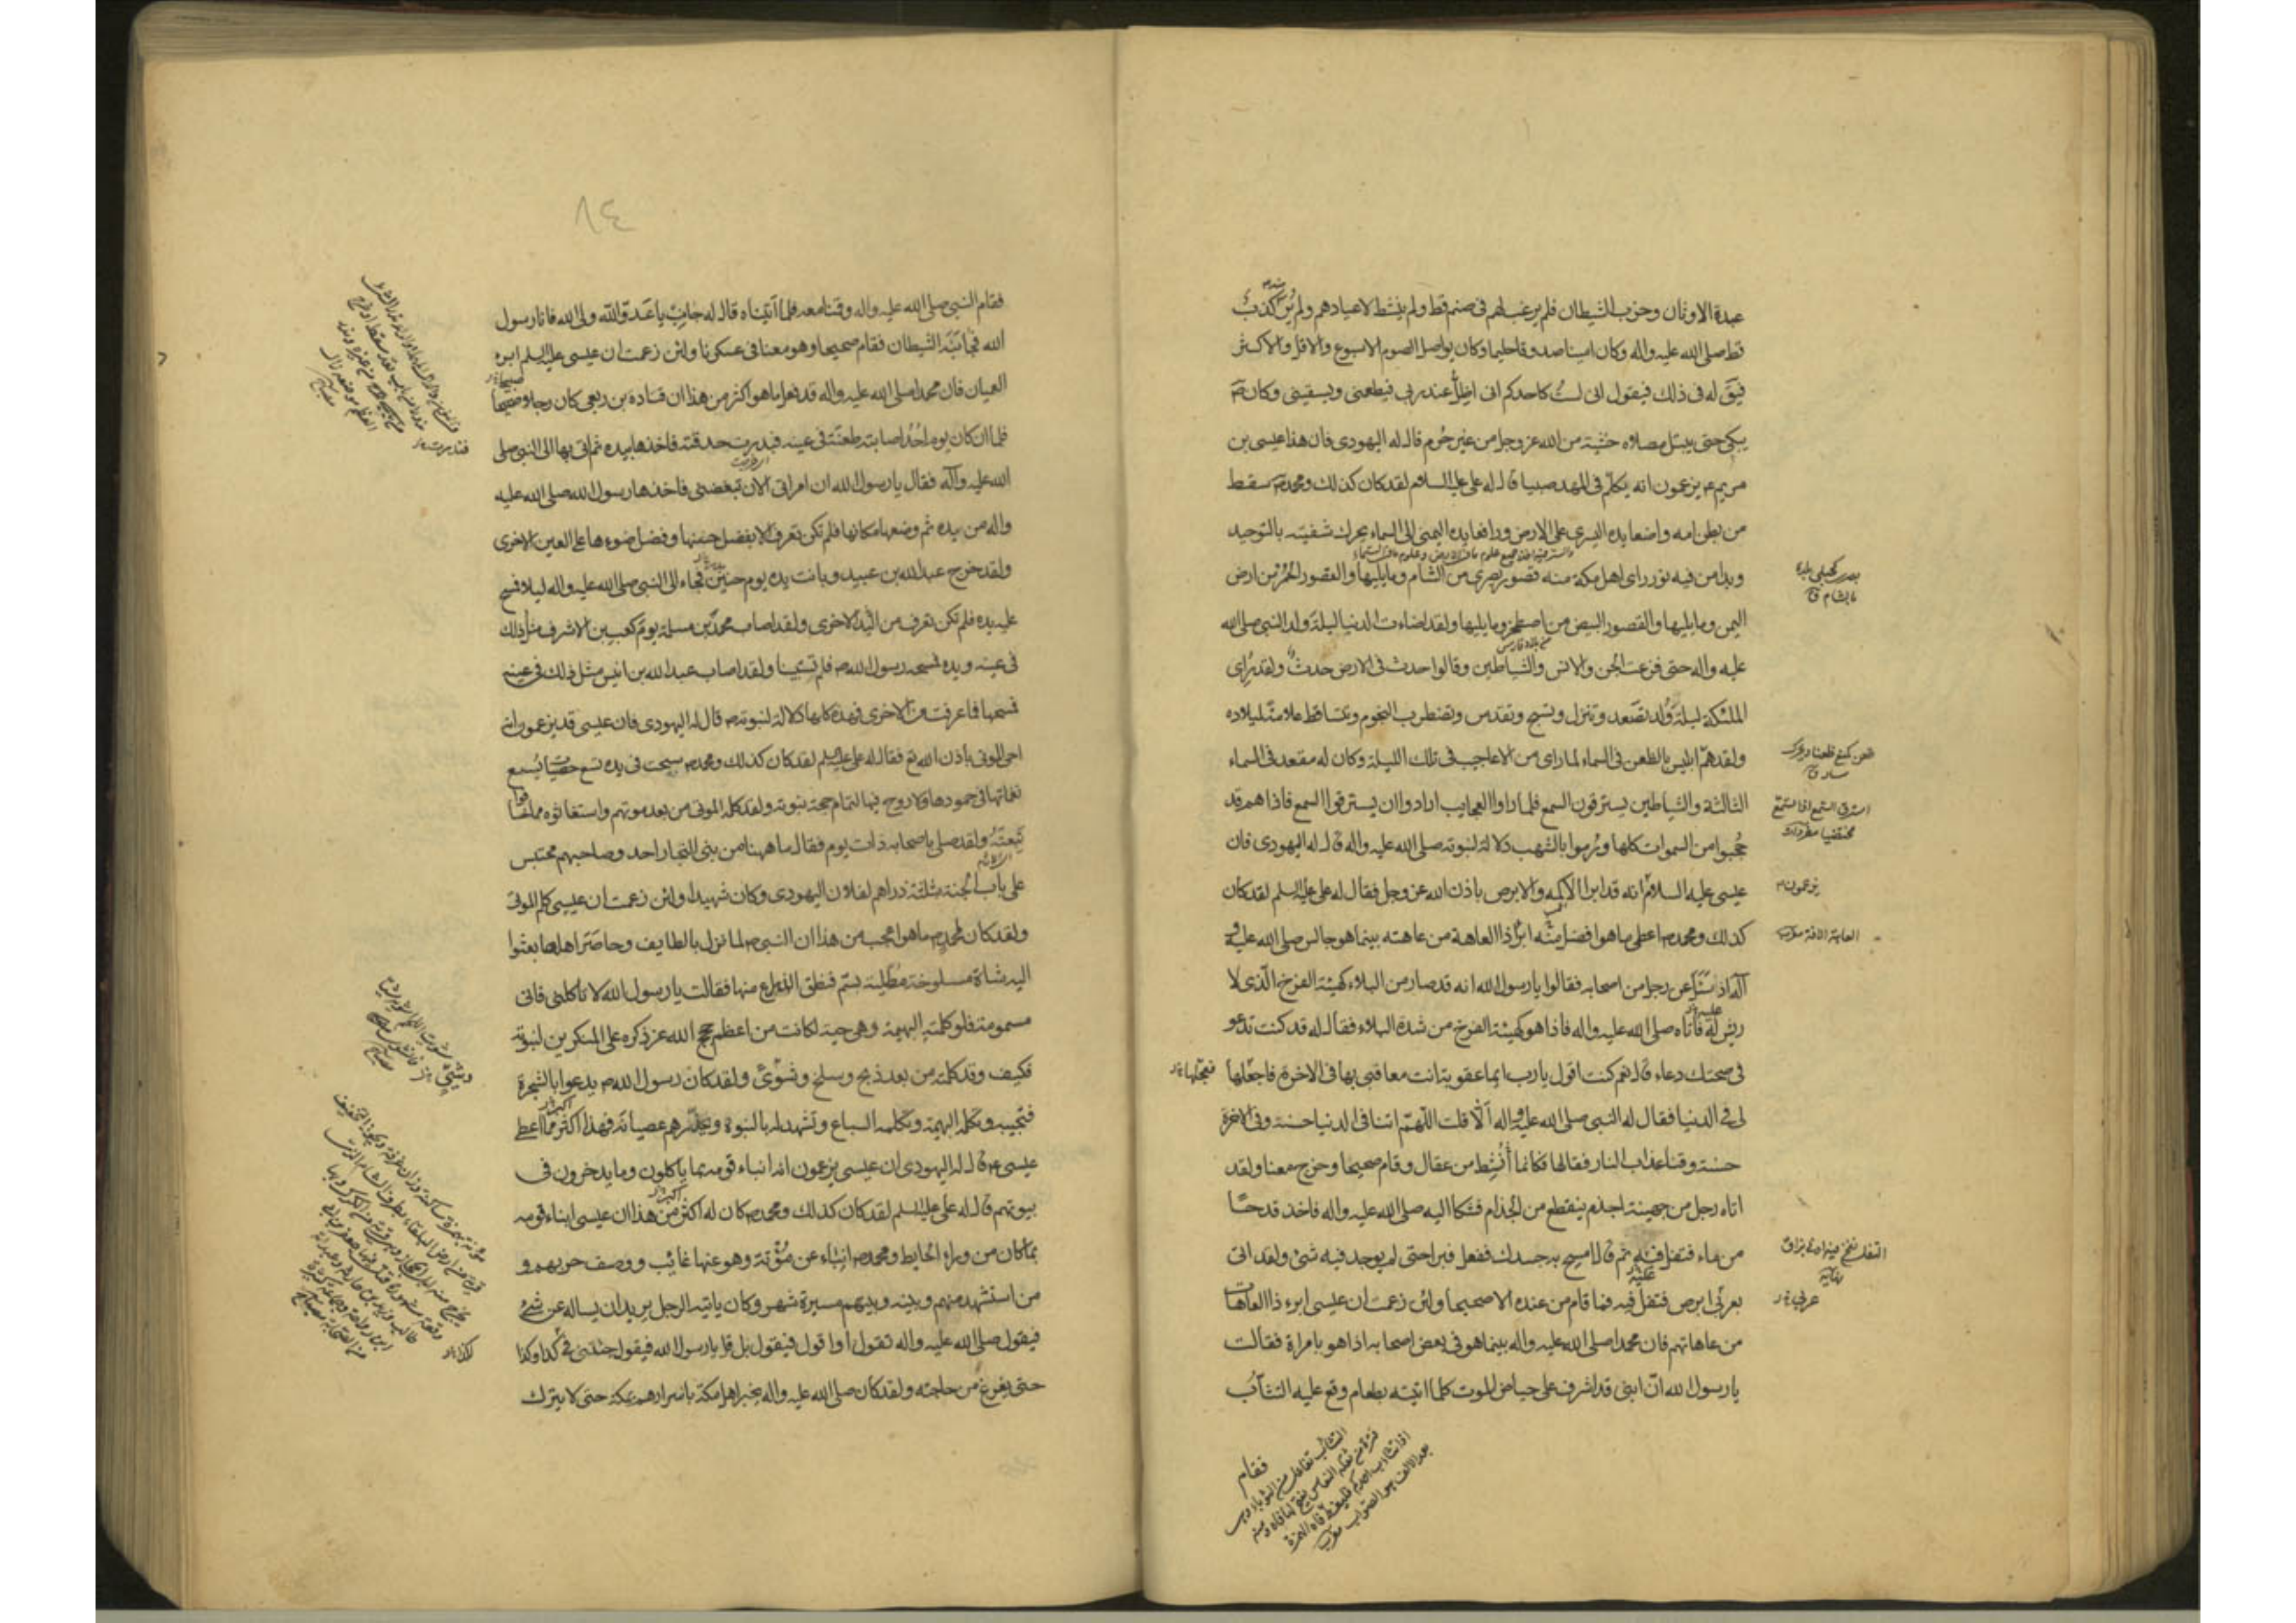 عبدة الاوثان وحزب الشيطان فلم يرغب لهم فى صنم قط ولم ينشط لاعيادهم ولم يُرَ منه كذبٌ
قط صلى الله عليه واله وكان امينا صدوقا حليما وكان يواصل الصوم الاسبوع والاقل والاكثر
فيق له فى ذلك فيقول انى لستُ كاحدكم انى اظلُّ عند ربى فيطعمنى ويسقينى وكان صَ
يبكى حتى يبتل مصلاه خشية من الله عز وجل من غير جُرم قال له اليهودى فان هذا عيسى بن
مريم ع يزعمون انه تكلّم فى المهد صبيا قال له على عليه السلام لقد كان كذلك ومحمد صَ سقط
من بطن امه واضعا يده اليسرى على الارض ورافعا يده اليمنى الى السماء يحرك شفتيه بالتوحيد
وبدا من فيه نور راى اهل مكة منه قصور بصرى من الشام وما يليها والقصور الحُمْرَ من ارض
اليمن وما يليها والقصور البيض من اصطخر وما يليها ولقد اضاءت الدنيا ليلة ولد النبى صلى الله
عليه واله حتى فزعت الجن والانس والشياطين وقالوا حدث فى الارض حدثٌ ولقد تُراى
الملئكة ليلة وُلد تصّعد وتنزل وتسبح وتقدس وتضطرب النجوم وتتساقط علامة لميلاده
ولقد همّ ابليس بالظعن فى السماء لما راى من الاعاجيب فى تلك الليلة وكان له مقعد فى السماء
الثالثة والشياطين يسترقون السمع فلما راوا العجايب ارادوا ان يسترقوا السمع فاذا هم قد
حُجبوا من السموات كلها ورُموا بالشهب دلالة لنبوته صلى الله عليه واله قال له اليهودى فان
عيسى عليه السلام انه قد ابرا الاكمه والابرص باذن الله عز وجل فقال له على عليه السلم لقد كان
كذلك ومحمد ص اعطى ما هو افضل منه ابرأ ذا العاهة من عاهته بينما هو جالس صلى الله عليه و
آله اذ سَئَل عن رجل من اصحابه فقالوا يا رسول الله انه قد صار من البلاء كهيئة الفرخ الّذى لا
ريش له فاتاه صلى الله عليه واله فاذا هو كهيئة الفرخ من شدة البلاء فقال له قد كنت تدعو
فى صحتك دعاء قال نعم كنت اقول يا رب ايما عقوبة انت معاقبى بها فى الاخرة فاجعلها
لى فى الدنيا فقال له النبى صلى الله عليه واله اَلّا قلت اللّهمّ اتنا فى الدنيا حسنة وفى الاخرة
حسنة وقنا عذاب النار فقالها فكانما أُنشط من عقال وقام صحيحا وخرج معنا ولقد
اتاه رجل من جهينة اجذم ينقطع من الجذام فشكا اليه صلى الله عليه واله فاخذ قدحًا
من ماء فتفل فيه ثم قال امسح به جسدك ففعل فبرا حتى لم يوجد فيه شئ ولقد اتى
بعربى ابرص فتفل فيه فما قام من عنده الا صحيحا ولئن زعمت ان عيسى ابرء ذا العاهات
من عاهاتهم فان محمدا صلى الله عليه واله بينما هو فى بعض اصحابه اذا هو بامراة فقالت
يا رسول الله انّ ابنى قد اشرف على حياض الموت كلما اتيته بطعام وقع عليه التثأبُ
فقام
بصرى كحبلى بلدة
بالشام ق
ظعن كمنع ظعنا ويحرك
سار ق
استرق السمع اذا استمع
مختفيا
يزعمون
العاهة الافة
فعجّلها
التفل نفخ معه ادنى بزاق
نهاية
عربى
٨٤
فقام النبى صلى الله عليه واله وقمنا معه فلما آتيناه قال له جانِبْ يا عَدوّ الله ولى الله فانا رسول
الله فجانَبَه الشيطان فقام صحيحا وهو معنا فى عسكرنا ولئن زعمت ان عيسى عليه السلم ابرء
العميان فان محمدا صلى الله عليه واله قد فعل ما هو اكثر من هذا ان قتادة بن ربعى كان رجلا صبيحا
فلما ان كان يوم اُحُد اصابته طعنة فى عينه فبدرت حدقته فاخذها بيده ثم اتى بها الى النبى صلى
الله عليه وآله فقال يا رسول الله ان امراتى الان تبغضنى فاخذها رسول الله صلى الله عليه
واله من يده ثم وضعها مكانها فلم تكن تعرف الا بفضل حسنها وفضل ضوءها على العين الاخرى
ولقد خرج عبد الله بن عبيد وبانت يده يوم حنين فجاء الى النبى صلى الله عليه واله ليلا فمسح
عليه يده فلم تكن تعرف من اليد الاخرى ولقد اصاب محمد بن مسلمة يوم كعب بن الاشرف مثل ذلك
فى عينه ويده فمسحه رسول الله ص فلم تستبينا ولقد اصاب عبد الله بن انيس مثل ذلك فى عينه
فمسحها فما عرفت من الاخرى فهذه كلها دلالة لنبوته ص قال له اليهودى فان عيسى قد يزعمون انه
احى الموتى باذن الله تع فقال له على عليه السلم لقد كان كذلك ومحمد ص سبحت فى يده تسع حصيات يُسمع
نغماتها فى جمودها ولا روح فيها لتمام حجة نبوته ولقد كلمه الموتى من بعد موتهم واستغاثوه مما خافوا
تَبِعَتَهُ ولقد صلى باصحابه ذات يوم فقال ما ههنا من بنى النجار احد وصاحبهم محتبس
على باب الجنة بثلثة دراهم لفلان اليهودى وكان شهيدا ولئن زعمت ان عيسى كلم الموتى
ولقد كان لمحمد ص ما هو اعجب من هذا ان النبى ص لما نزل بالطايف وحاصَرَ اهلها بعثوا
اليه شاة مسلوخة مطلية بسّم فنطق الذراع منها فقالت يا رسول الله لا تاكلنى فانى
مسمومة فلو كلمته البهيمة وهى حية لكانت من اعظم حجج الله عز ذكره على المنكرين لنبوته
فكيف وقد كلمته من بعد ذبح وسلخ وشوىً ولقد كان رسول الله ص يدعوا بالشجرة
فتجيبه وتكلمه البهيمة وتكلمه السباع وتشهد له بالنبوة وتحذّرهم عصيانه فهذا اكثر مما اعطى
عيسى ع قال له اليهودى ان عيسى يزعمون انه انباء قومه بما ياكلون وما يدخرون فى
بيوتهم قال له على عليه السلم لقد كان كذلك ومحمد ص كان له اكثر من هذا ان عيسى انباء قومه
بما كان من وراء الحايط ومحمد ص انباء عن مُؤْتة وهو عنها غائب ووصف حربهم و
من استشهد منهم وبينه وبينهم مسيرة شهر وكان ياتيه الرجل يريد ان يساله عن شئ
فيقول صلى الله عليه واله تقول او اقول فيقول بل قل يا رسول الله فيقول جئتنى فى كذا وكذا
حتى يفرغ من حاجته ولقد كان صلى الله عليه واله يخبر اهل مكة باسرارهم بمكة حتى لا يترك